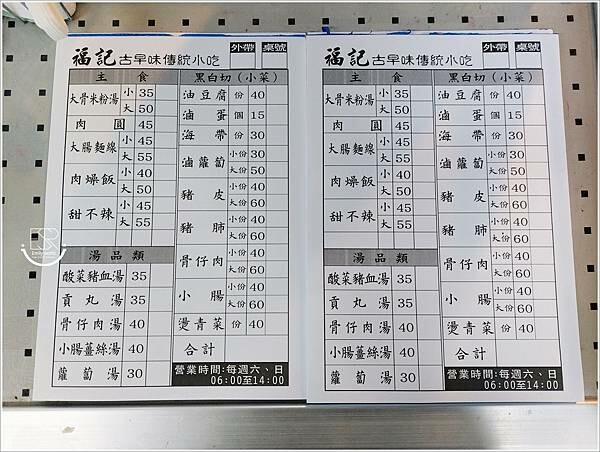 福記古早味傳統小吃 外帶 桌號
主食
大骨米粉湯 小 35
大 50
肉圓 45
大腸麵線 小 45
大 55
肉燥飯 小 40
大 50
甜不辣 小 45
大 55
湯品類
酸菜豬血湯 35
貢丸湯 35
骨仔肉湯 40
小腸薑絲湯 40
蘿蔔湯 30
黑白切(小菜)
油豆腐 份 40
滷蛋 個 15
海帶 份 30
滷蘿蔔 小份 30
大份 50
豬皮 小份 40
大份 60
豬肺 小份 40
大份 60
骨仔肉 小份 40
大份 60
小腸 小份 40
大份 60
燙青菜 份 40
合計
營業時間:每週六、日
06:00至14:00
福記古早味傳統小吃 外帶 桌號
主食
大骨米粉湯 小 35
大 50
肉圓 45
大腸麵線 小 45
大 55
肉燥飯 小 40
大 50
甜不辣 小 45
大 55
湯品類
酸菜豬血湯 35
貢丸湯 35
骨仔肉湯 40
小腸薑絲湯 40
蘿蔔湯 30
黑白切(小菜)
油豆腐 份 40
滷蛋 個 15
海帶 份 30
滷蘿蔔 小份 30
大份 50
豬皮 小份 40
大份 60
豬肺 小份 40
大份 60
骨仔肉 小份 40
大份 60
小腸 小份 40
大份 60
燙青菜 份 40
合計
營業時間:每週六、日
06:00至14:00